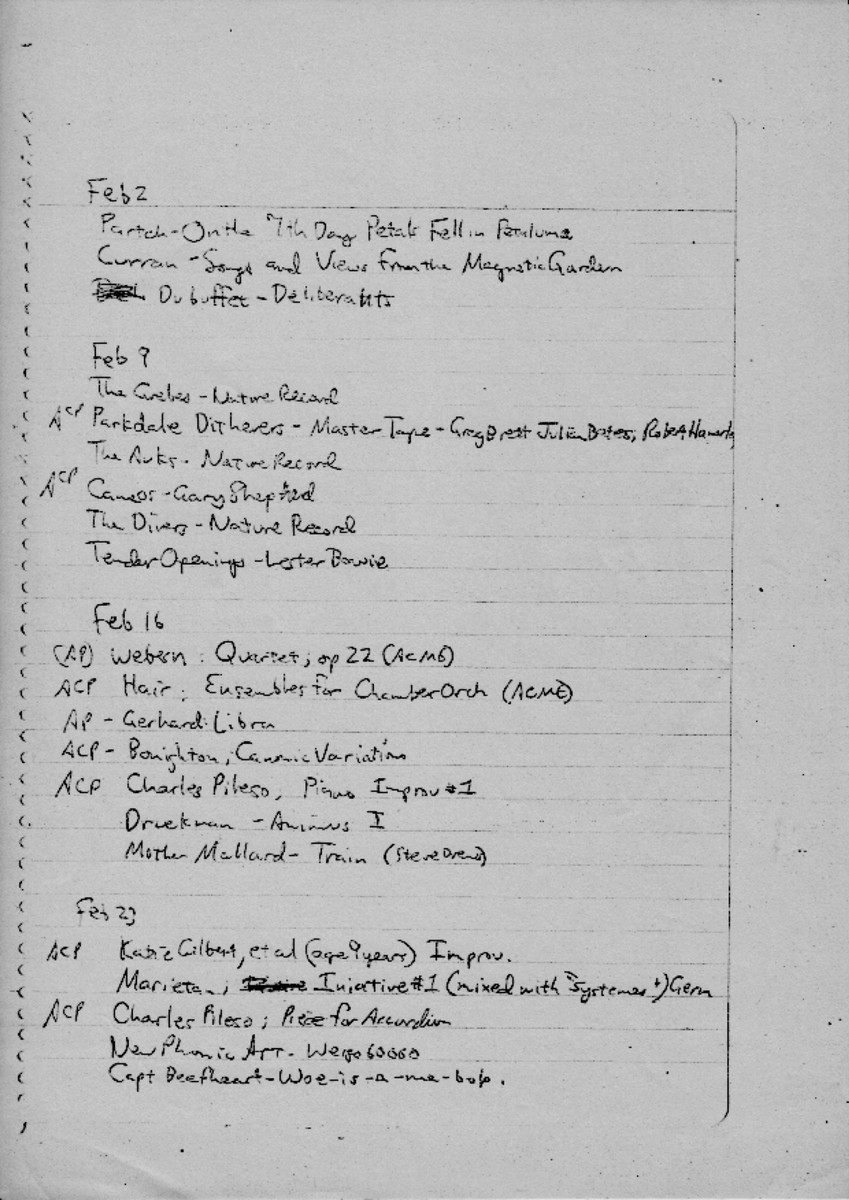 Feb 2
Partch - On the 7th Day Petals Fell in Petaluma
Curran - Songs and Views From the Magnetic Garden
Dubuffet - Deliberants
Feb 9
The Grebes - Nature Record
ACP Parkdale Ditherers - Master Tape - Greg Brett Julian Bates, Robert
The Auks - Nature Record
ACP Cameos - Gary Shepherd
The Divers - Nature Record
Tender Openings - Lester Bowie
Feb 16
(AP) Webern : Quartet; op 22 (ACME)
ACP Hair : Ensembles for Chamber Orch (ACME)
AP - Gerhard: Libra
ACP - Boughton; Canonic Variations
ACP Charles Pileso, Piano Improv #1
Druckman - Animus I
Mother Mallard - Train (Steve Drews)
Feb 23
ACP Katie Gilbert, et al (age 9 years) Improv.
Marietan; Iniative #1 (mixed with "Systemes") Germ
ACP Charles Pileso; Piece for Accordion
New Phonic Art - Wergo 60060
Capt Beefheart - Woe-is-a-me-bop.